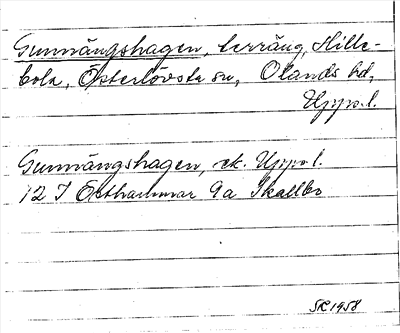 Gunnängshagen, terräng, Hille-
bola, Österlövsta sn, Olands hd,
Upps.l.
Gunnängshagen, ek. Upps.l.
12 I Östhammar 9a Skallbo
SR 1958